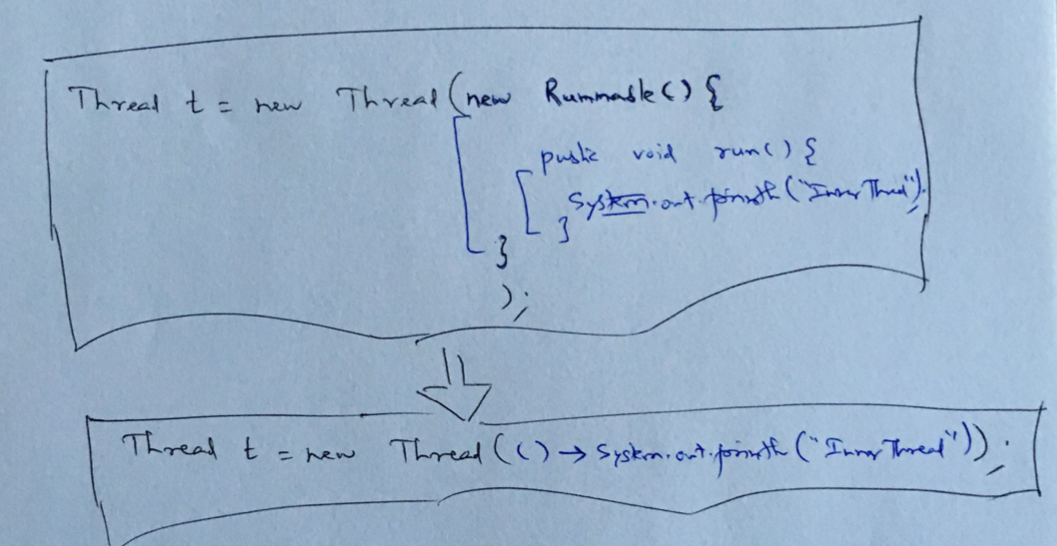 Thread t = new Thread(new Runnable() {
public void run() {
System.out.println("Inner Thread");
}
}
);
Thread t = new Thread(() → System.out.println("Inner Thread"));